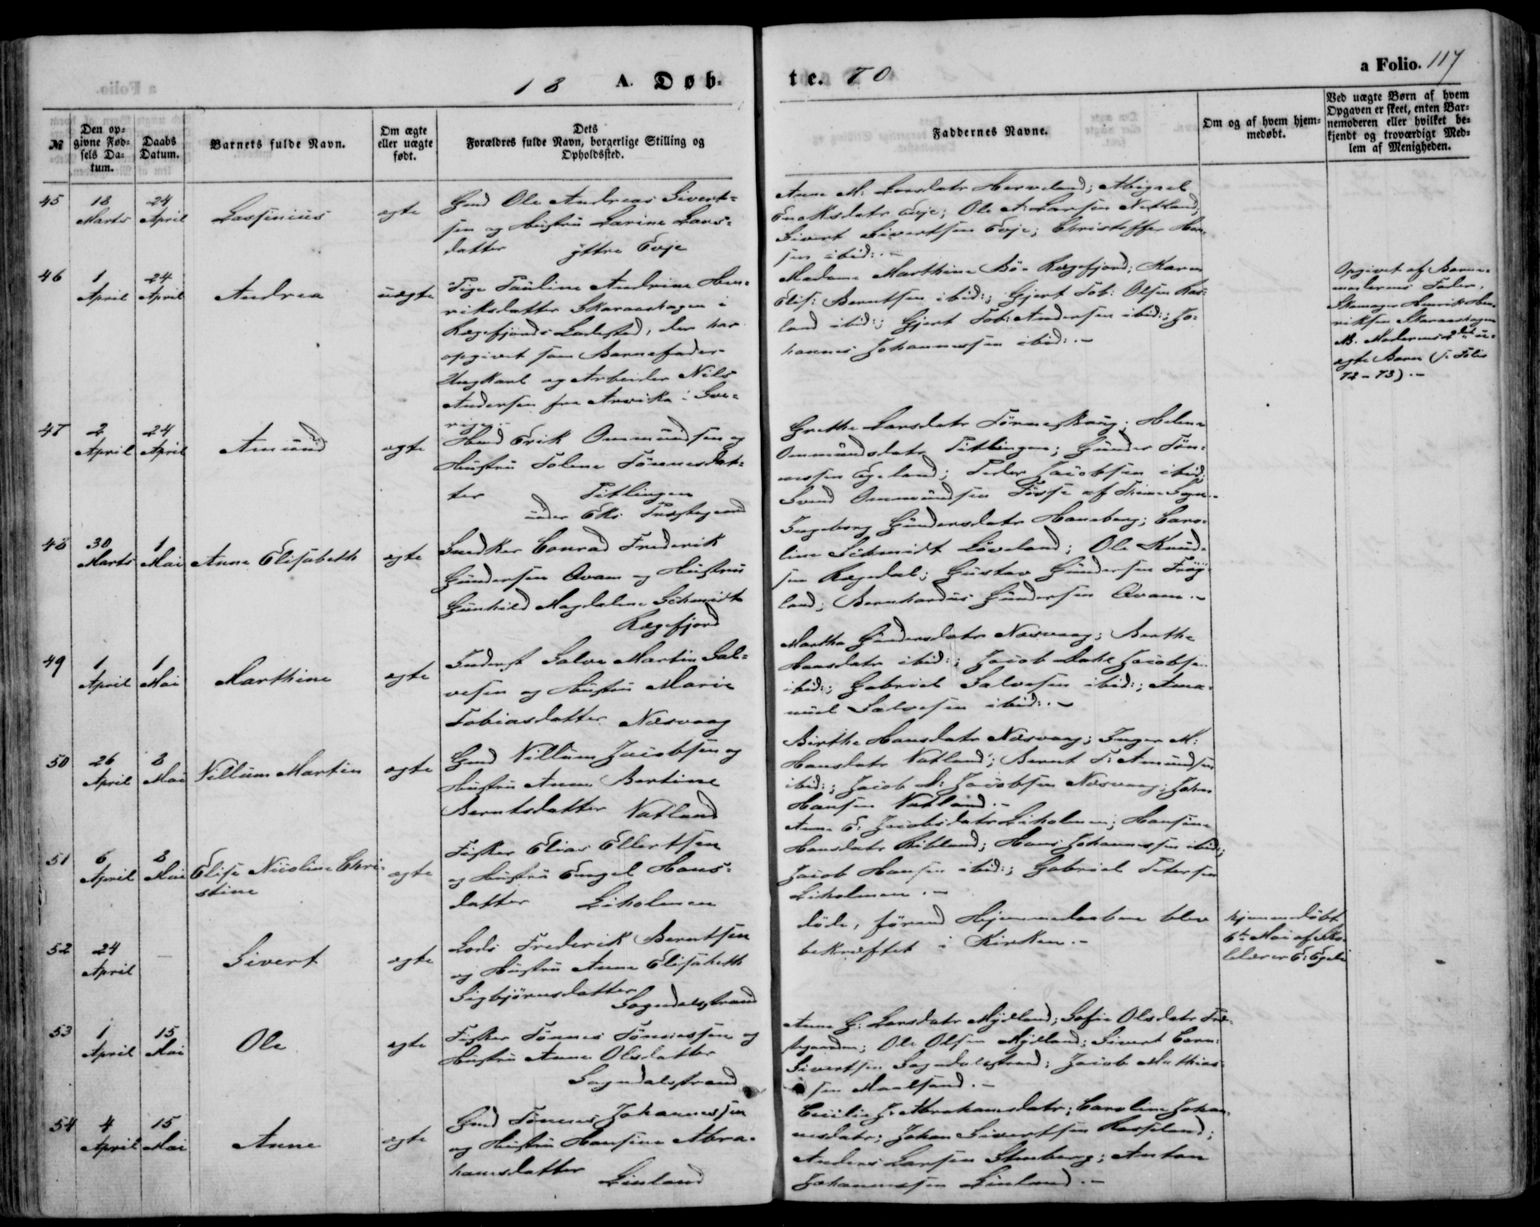 18 A. Døb.
te. 70
a Folio. 117
№
Den opgivne Fødsels Datum.
Daabs Datum.
Barnets fulde Navn.
Om ægte eller uægte født.
Dets Forældres fulde Navn, borgerlige Stilling og Opholdssted.
Faddernes Navne.
Om og af hvem hjemmedøbt.
Ved uægte Børn af hvem Opgaven er skeet, enten Barnemoderen eller hvilket bekjendt og troværdigt Medlem af Menigheden.
45 18 Marts 24 April Lassenius ægte
Gmd Ole Andreas Sivert-
sen og Hustru Larine Lars-
datter ÿttre Evje
Anne M. Larsdatr ; Abigael
Evje; Ole A. Larsen Netland,
Sivert Sivertsen Evje; Christoffer
sen ibid: .-
46 1 April 24 April Andrea uægte
Pige Pauline Andrine Hen-
riksdatter Skaraashagen i
Rægefjords Ladested, der har
opgivet som Barnefader
Ungkarl og Arbeider Nils
Andersen fra Arvika i Sve-
rige
Madame Marthine Bö- Rægefjord; Karen
Elis: Berntsen ibid:; Gjert Tob: Olsen
land ibid:; Gjert Tob: Andersen ibid:; Jo-
hannes Johannessen ibid: .-
Opgivet af Barne-
moderens Fader,
Henrik Hen-
riksen Skaraashagen
NB. Moderens 2det u-
ægte Barn (s. Folio
72-73) .-
47 2 April 24 April Amund ægte
Gmd Erik Ommundsen og
Hustru Tolene Tönnesdat-
ter Titlingen
under
Grethe Larsdatr ; Helene
Ommundsdatr Titlingen; Gunder Tön-
nessen Egeland; Peder Jacobsen ibid
Svend Ommundsen Fosse af
48 30 Marts 1 Mai Anne Elisabeth ægte
Snedker Conrad Frederik
Gundersen Qvam og Hustru
Gunhild Magdalene Schmidt
Rægefjord
Ingeborg Gundersdatr Haneberg; Caro-
line Schmidt Löveland; Ole Knud-
sen Rægedal; Gustav Gundersen Fröy-
land; Bernhardus Gundersen Qvam .-
49 1 April 1 Mai Marthine ægte
Inderst Salve Martin Sal-
vesen og Hustru Marie
Tobiasdatter Næsvaag
Martha Gundersdatr Næsvaag; Berthe
Hansdatr ibid:; Jacob Jacobsen
ibid:; Gabriel Salvesen ibid:; Ama-
nuel Salvesen ibid: .-
50 26 April 8 Mai Villum Martin ægte
Gmd Villum Jacobsen og
Hustru Anne Bertine
Berntsdatter Vatland
Birthe Hansdatr Næsvaag; Inger M:
Hansdatr Vatland; Bernt T: Amundsen
ibid:; Jacob Jacobsen Næsvaag; John
Hansen Vatland .-
51 6 April 8 Mai Elise Nicoline Chri-
stine ægte
Fisker Elias Ellertsen
og Hustru Engel Hans-
datter Liholmen
Anne E. Jacobsdatr Liholmen; Hansine
Hansdatr ; Hans Johannessen ibid:;
Jacob Hansen ibid:; Gabriel Petersen
Liholmen .-
52 24 April - Sivert ægte
Lods Frederik Berntsen
og Hustru Anne Elisabeth
Sigbjörnsdatter
Sogndalstrand
döde, förend Hjemmedaaben blev
bekræftet i Kirken .-
hjemmedöbt
6te Mai af Sko-
lelærer E: Egeli
53 1 April 15 Mai Ole ægte
Fisker Tönnes Tönnessen og
Hustru Anne Olsdatter
Sogndalstrand
Anne G. Larsdatr Mydland; Sofie Olsdatr
; Ole Olsen Mydland; Sivert
Sivertsen Sogndalstrand; Jacob Mathias-
sen .-
54 4 April 15 Mai Anne ægte
Gmd Tönnes Johannessen
og Hustru Hansine Abra-
hamsdatter Linland
Cecilie J. Abrahamsdatr; Caroline Johan-
nesdatr; Johan Sivertsen ;
Anders Larsen Stenberg; Anton
Johannessen Linland .-